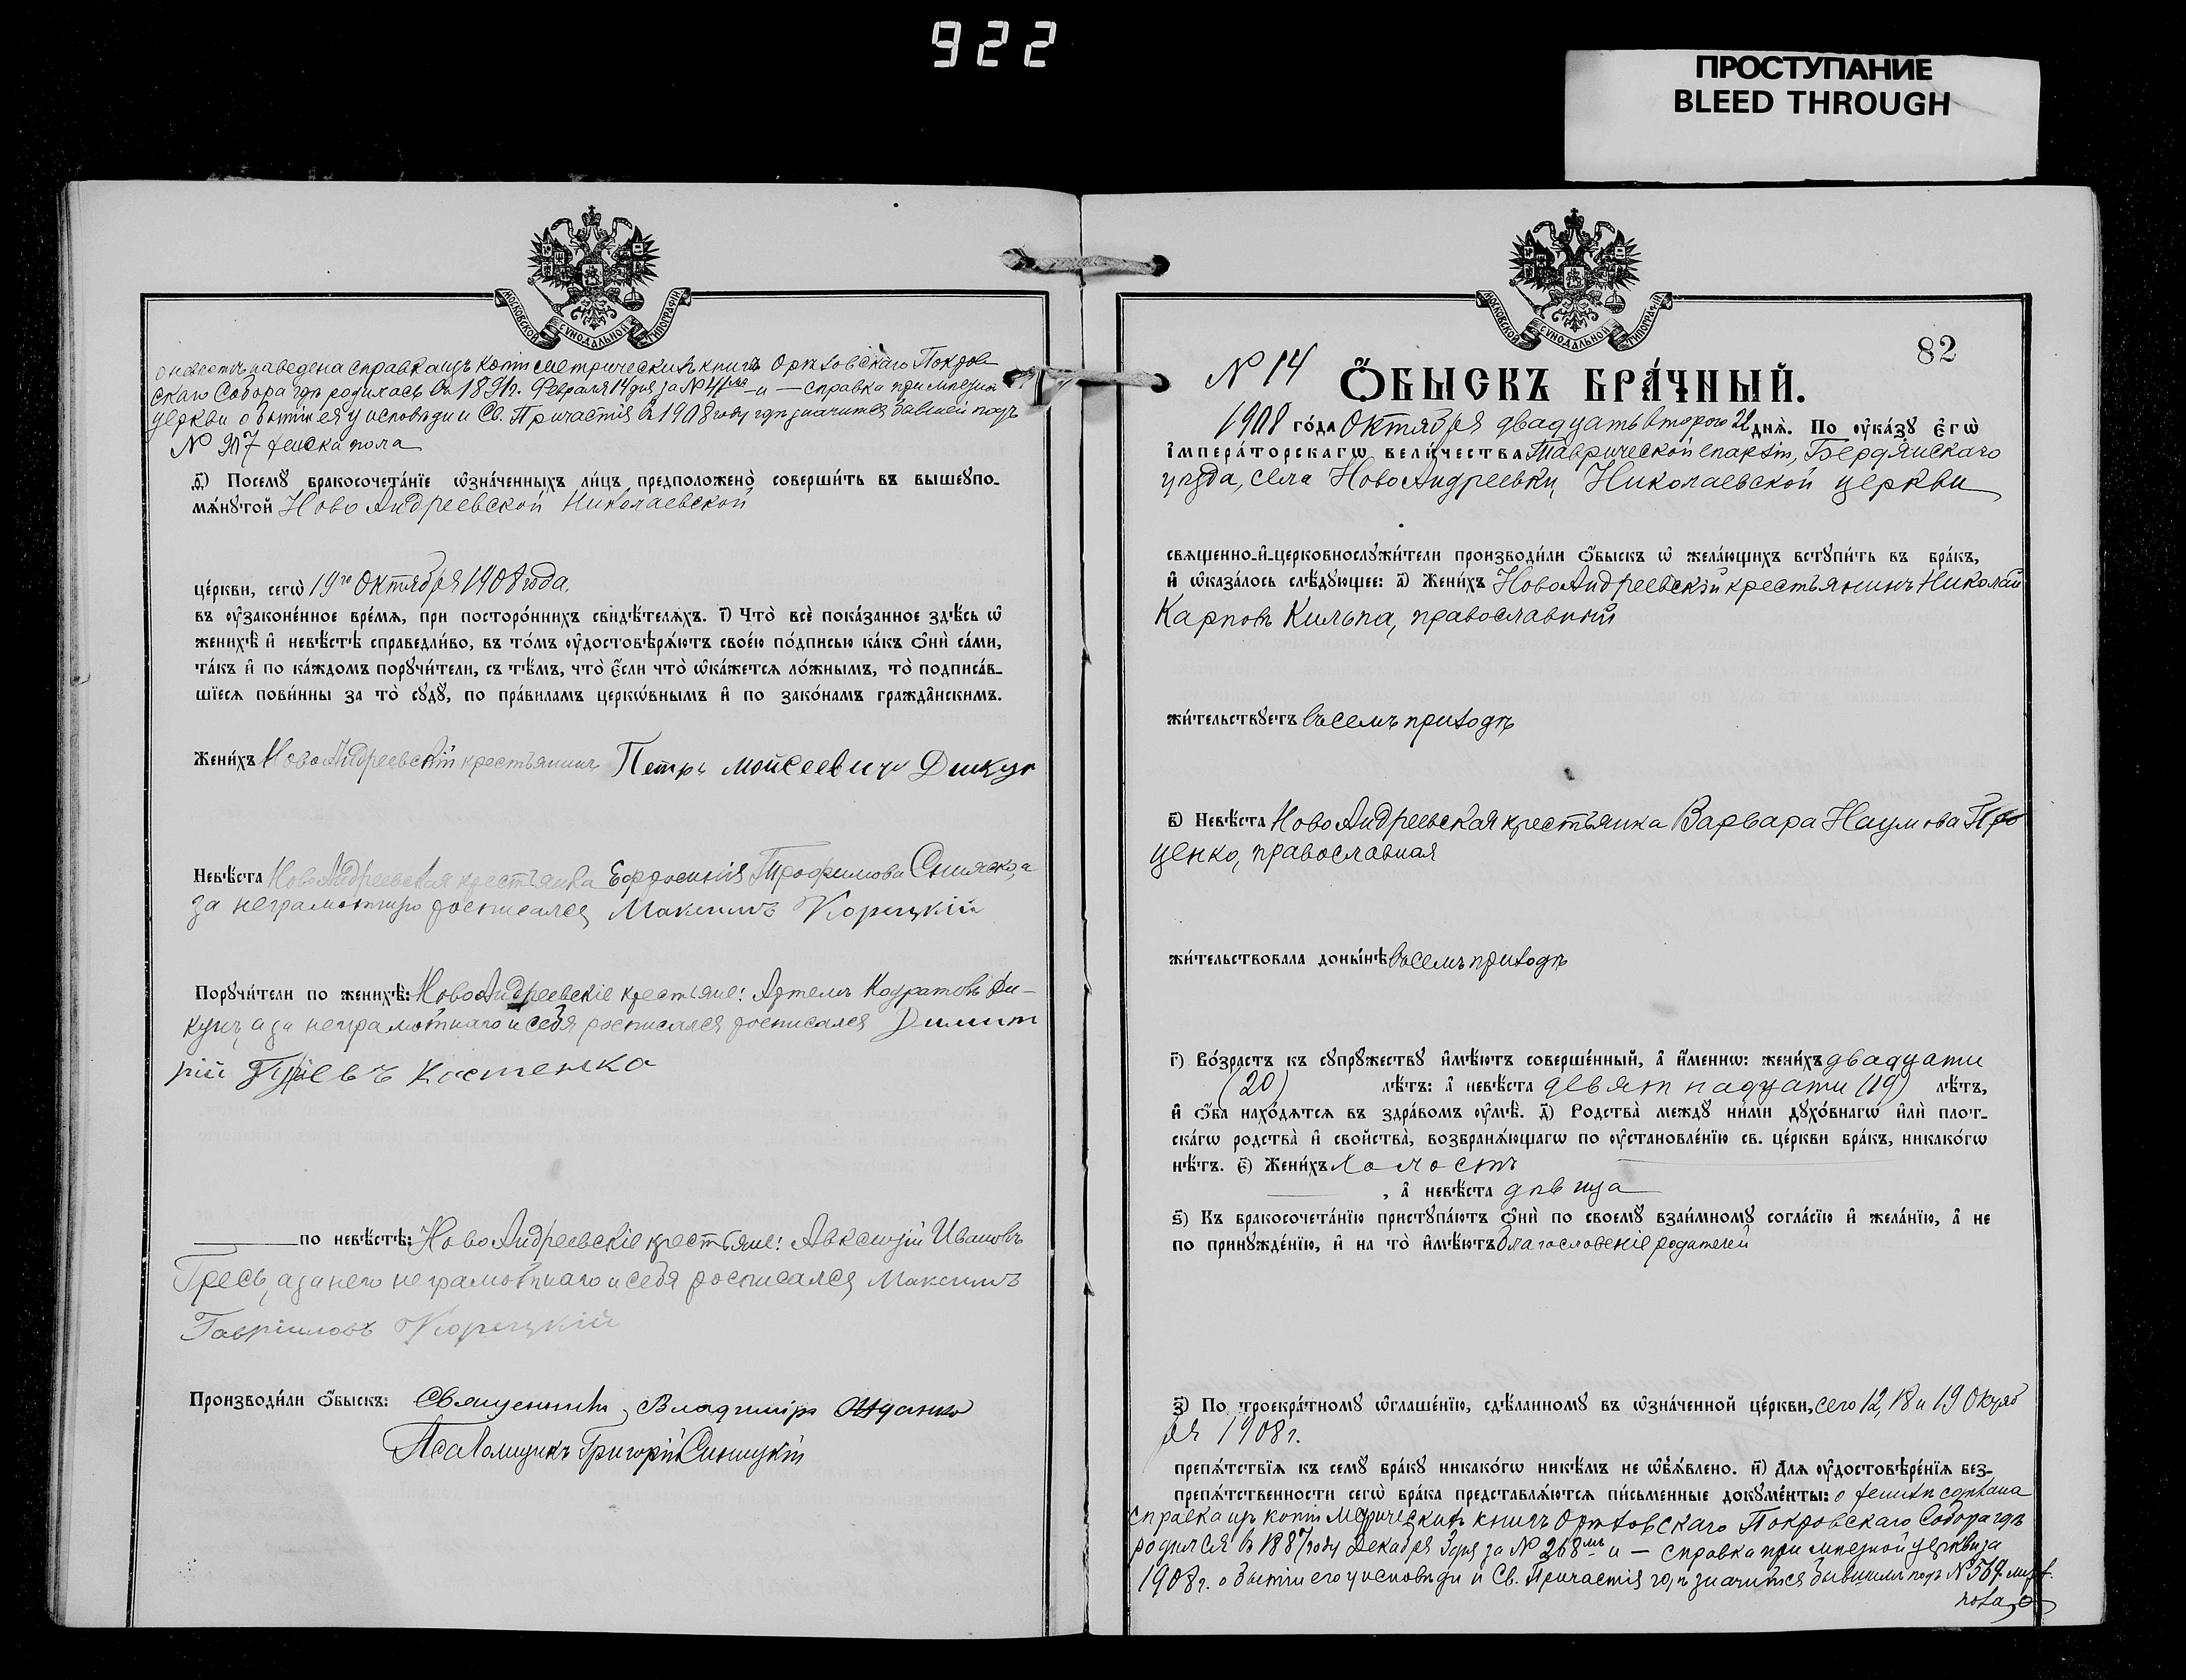 922
ПРОСТУПАНИЕ
BLEED THROUGH
МОСКОВСКОЙ СѴНОДАЛЬНОЙ ТИПОГРАФІИ
о невестѣ наведена справка изъ копіи метрическихъ книгъ Орѣховскаго Покров
скаго Собора гдѣ родилась въ 1891г. Февраля 14 дня за № и — справка при мѣстной
церкви о бытіи ея у исповѣди и Св. Причастія въ 1908 году гдѣ значится бывшей подъ
№ женска пола
д҃) Посемꙋ бракосочета́нїе ѡ҆зна́ченныхъ ли́цъ предположено̀ соверши́ть въ вышеꙋпо-
мѧ́нꙋтой Ново Андреевской Николаевской
це́ркви, сегѡ̀ 19го Октября 1908 года.
въ ᲂу҆законе́нное вре́мѧ, при посторо́ннихъ свидѣ́телѧхъ. і҃) Что̀ всѐ пока́занное здѣ́сь ѡ҆
женихѣ̀ и҆ невѣ́стѣ справедли́во, въ то́мъ ᲂу҆достовѣрѧ́ютъ свое́ю по́дписью ка́къ ѻ҆нѝ са́ми,
та́къ и҆ по ка́ждомъ порꙋчи́тели, съ тѣ́мъ, что̀ є҆́сли что̀ ѡ҆ка́жетсѧ ло́жнымъ, то̀ подписа́в-
шїесѧ пови́нны за то̀ сꙋдꙋ̀, по пра́виламъ церкѡ́внымъ и҆ по зако́намъ гражда̑нскимъ.
Жени́хъ Ново Андреевскій крестьянинъ Петръ Мойсеевичъ Дикун
Невѣ́ста Ново Андреевская крестьянка Ефросинія Трофимова а
за неграмотную росписался Максимъ Корецкій
Порꙋчи́тели по женихѣ̀: Ново Андреевскіе крестьяне: Артемъ Кодратовъ Ди-
кунъ, а за неграмотнаго и себя росписался росписался Димит
рій Костенко
по невѣ́стѣ: Ново Андреевскіе крестьяне: Авксентій Ивановъ
Гресь, а за него неграмотнаго и себя росписался Максимъ
Гавріиловъ Корецкій
Производи́ли ѻ҆́быскъ: Священникъ Владиміръ
Псаломщикъ Григорій Синицкій
МОСКОВСКОЙ СѴНОДАЛЬНОЙ ТИПОГРАФІИ
82
№ 14
Ѻ҆́БЫСКЪ БРА́ЧНЫЙ.
1908 го́да Октября двадцать второго 22 днѧ̀. По ᲂу҆ка́зꙋ є҆гѡ̀
і҆мпера́торскагѡ вели́чества Таврической епархіи, Бердянскаго
уѣзда, села Ново Андреевки, Николаевской церкви
свѧщенно-и҆-церковнослꙋжи́тели производи́ли ѻ҆́быскъ ѡ҆ жела́ющихъ встꙋпи́ть въ бра́къ,
и҆ ѡ҆каза́лось слѣ́дꙋющее: а҃) Жени́хъ Ново Андреевскій крестьянинъ Николай
Карповъ Кильпа, православный
жи́тельствꙋетъ въ семъ приходѣ
в҃) Невѣ́ста Ново Андреевская крестьянка Варвара Наумова Про
ценко, православная
жи́тельствовала доны́нѣ въ семъ приходѣ
г҃) Во́зрастъ къ сꙋпрꙋжествꙋ и҆мѣ́ютъ соверше́нный, а҆ и҆́меннѡ: жени́хъ двадцати
(20) лѣ́тъ: а҆ невѣ́ста девятнадцати (19) лѣ́тъ,
и҆ ѻ҆́ба нахо́дѧтсѧ въ здра́вомъ ᲂу҆мѣ̀. д҃) Родства̀ междꙋ̀ ни́ми дꙋхо́внагѡ и҆лѝ плот-
ска́гѡ родства̀ и҆ сво́йства, возбранѧ́ющагѡ по ᲂу҆становле́нїю св. це́ркви бра́къ, никако́гѡ
нѣ́тъ. є҃) Жени́хъ холостъ
, а҆ невѣ́ста дѣвица
ѕ҃) Къ бракосочета́нїю пристꙋпа́ютъ ѻ҆нѝ по своемꙋ̀ взаи́мномꙋ согла́сїю и҆ жела́нїю, а҆ не
по принꙋжде́нїю, и҆ на то̀ и҆мѣ́ютъ благословеніе родителей
з҃) По троекра́тномꙋ ѡ҆глаше́нїю, сдѣ́ланномꙋ въ ѡ҆зна́ченной це́ркви, сего 12, 18 и 19 Октяб
ря 1908г.
препѧ́тствїѧ къ семꙋ̀ бра́кꙋ никако́гѡ никѣ́мъ не ѡ҆б̾ѧ́влено. и҃) Длѧ ᲂу҆достовѣре́нїѧ без-
препѧ́тственности сегѡ̀ бра́ка представлѧ́ютсѧ пи́сьменные докꙋме́нты: о женихѣ сдѣлана
справка изъ копіи метрическихъ книгъ Орѣховскаго Покровскаго Собора гдѣ
родился въ 1887 году Декабря 3 дня за № 268мъ и — справка при мѣстной церкви за
1908г. о бытіи его у исповѣди и Св. Причастія гдѣ значится бывшимъ подъ № 569 муж.
пола,